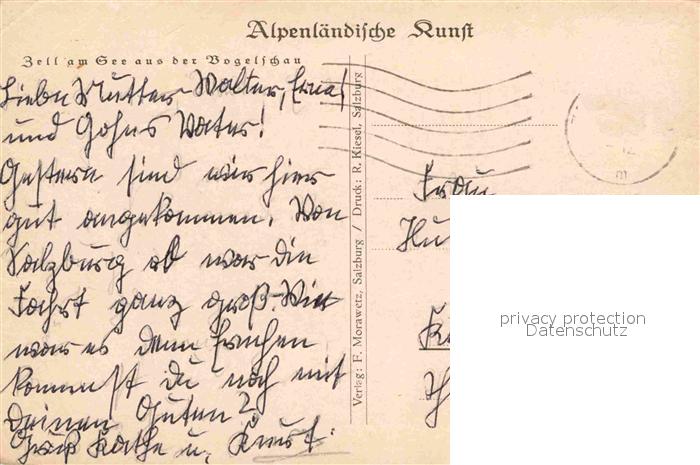 Alpenländische Kunst
Zell am See aus der Vogelschau
Liebe Mutter Walter, Erna
und Vater!
Gestern sind wir hier
gut angekommen. Von
Salzburg ab war die
Fahrt ganz groß. Wie
war es denn
kommst du noch mit
Deinen Guten?
Gruß Käthe u. Kurt.
Verlag: F. Morawetz, Salzburg / Druck: R. Kiesel, Salzburg
Frau
privacy protection
Datenschutz